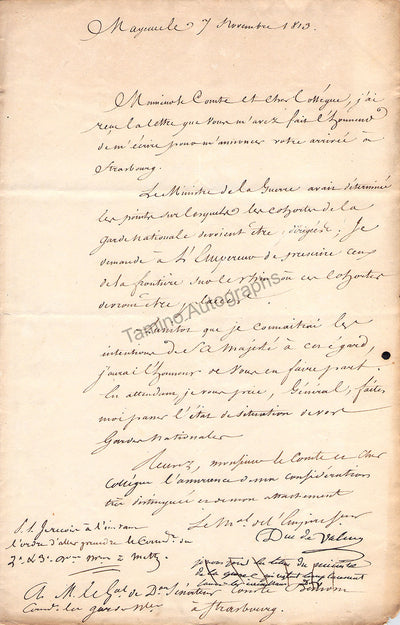 Mayence le 7 Novembre 1813.
Monsieur le Comte et cher Collégue, j'ai
reçu la lettre que vous m'avez fait l'honneur
de m'écrire pour m'annoncer votre arrivée à
Strasbourg.
Le Ministre de la Guerre avait déterminé
les points sur lesquels les cohortes de la
garde nationale devoient être dirigées; Je
demande à L'Empereur de prescrire ceux
de la frontière sur le rhin où ces cohortes
devront être placées.
Aussitot que je connaitrai les
intentions de Sa Majesté à cet égard,
j'aurai l'honneur de vous en faire part.
En attendant, je vous prie, Général, faites
moi passer l'état de situation de vos
Gardes Nationales
Recevez, monsieur le Comte et cher
Collégue l'assurance de ma considération
très distinguée et de mon attachement
Le Mal de l'Empire
Duc de Valmy
P.S. Je reçois à l'instant
l'ordre d'aller prendre le Comdt. des
2e & 3e Don mres à Metz
la lettre du ministre
de la guerre
A M. le Gal de Don Sénateur Comte
Comdt. les gardes Nles à Strasbourg.
Tamino Autographs